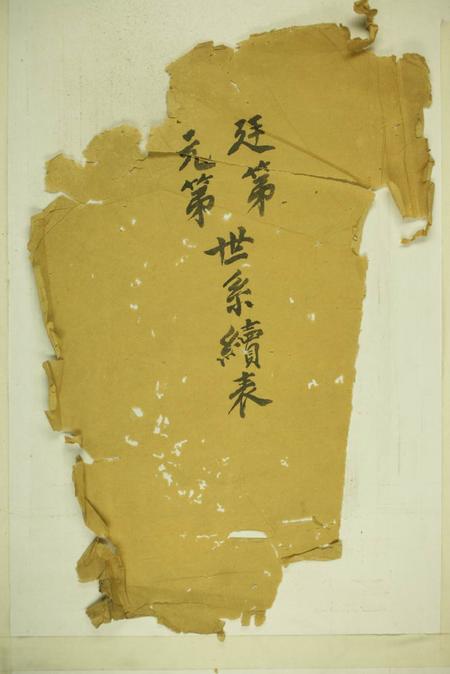 廷第
元第
世系續表